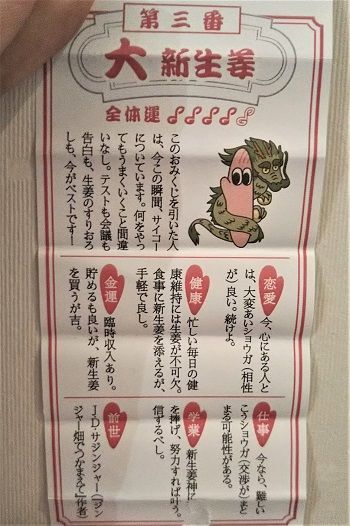 第三番
大新生姜
全体運♪♪♪♪♪
このおみくじを引いた人
は、今この瞬間、サイコー
についています。何をやっ
てもうまくいくこと間違
いなし。テストも会議も
告白も、生姜のすりおろ
しも、今がベストです！
恋愛 今、心にある人と
は、大変あいショウガ(相性
が)良い。続けよ。
健康 忙しい毎日の健
康維持には生姜が不可欠。
食事に新生姜を添えるが、
手軽で良し。
金運 臨時収入あり。
貯めるも良いが、新生姜
を買うが吉。
仕事 今なら、難しい
こうショウガ(交渉が)まと
まる可能性がある。
学業 新生姜神に祈り
を捧げ、努力すれば叶う。
信ずるべし。
前世 J・D・サジンジャー(『ジン
ジャー畑でつかまえて』作者)